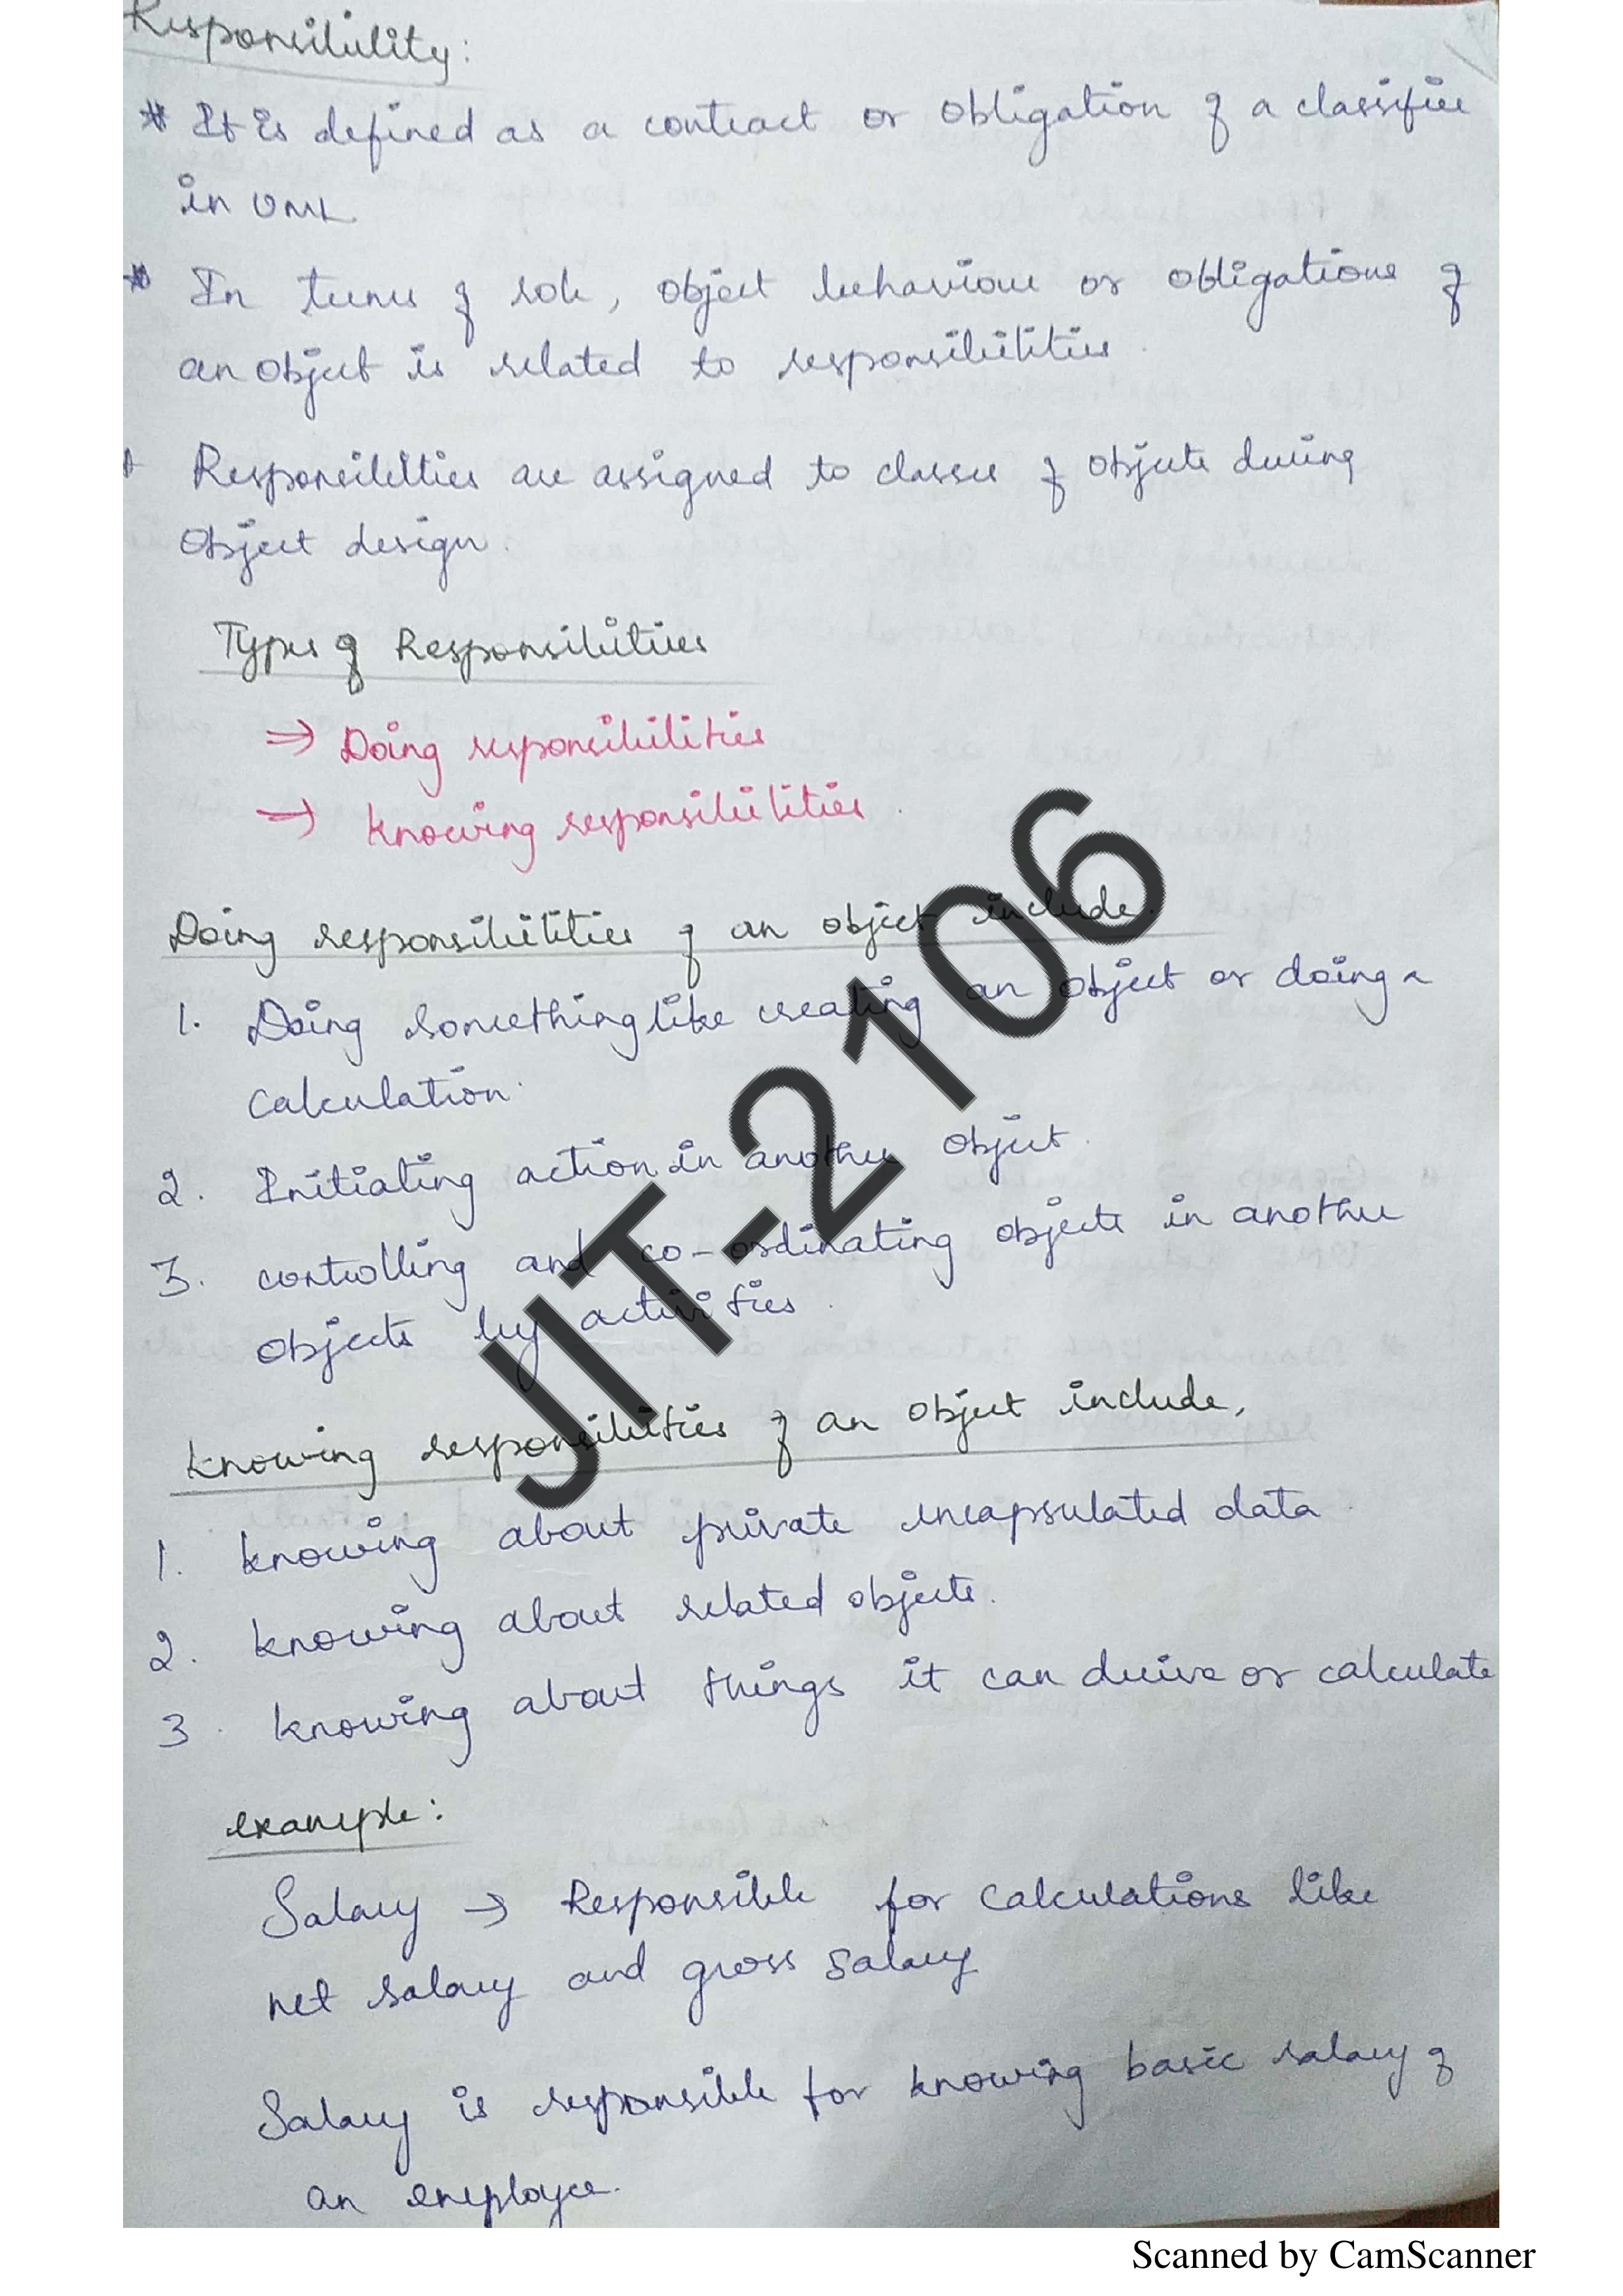 Responsibility:
* It is defined as a contract or obligation of a classifier
in UML
* In terms of role, object behaviour or obligations of
an object is related to responsibilities.
* Responsibilities are assigned to classes of objects during
object design.
Types of Responsibilities
⇒ Doing responsibilities
⇒ Knowing responsibilities.
Doing responsibilities of an object include.
1. Doing something like creating an object or doing a
calculation.
2. Initiating action in another object.
3. controlling and co-ordinating objects in another
objects by activities.
Knowing responsibilities of an object include,
1. knowing about private encapsulated data.
2. knowing about related objects.
3. knowing about things it can derive or calculate
example:
Salary → Responsible for calculations like
net salary and gross salary
Salary is responsible for knowing basic salary of
an employee.
JIT-2106
Scanned by CamScanner